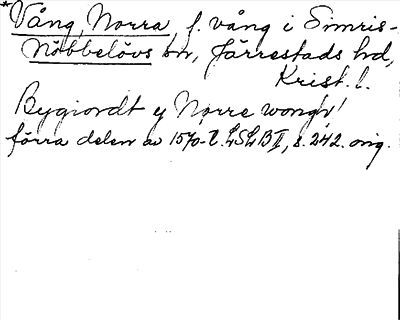 *Vång, Norra, f. vång i Simris-
Nöbbelövs sn, Järrestads hd,
Krist. l.
Bygiordt y Nørre wongh!
förra delen av 1570-t. LSLB II, s. 242. orig.